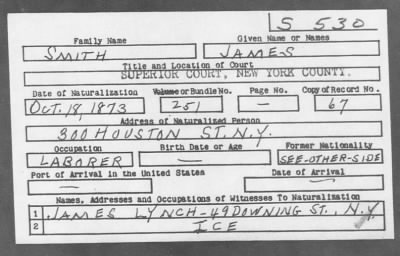 S 530
Family Name Given Name or Names
SMITH JAMES
Title and Location of Court
SUPERIOR COURT, NEW YORK COUNTY.
Date of Naturalization Volume or Bundle No. Page No. Copy of Record No.
OCT. 18, 1873 251 — 67
Address of Naturalized Person
300 HOUSTON ST. N.Y.
Occupation Birth Date or Age Former Nationality
LABORER — SEE-OTHER-SIDE
Port of Arrival in the United States Date of Arrival
— —
Names, Addresses and Occupations of Witnesses To Naturalization
1 JAMES LYNCH-49 DOWNING ST., N.Y.
2 ICE